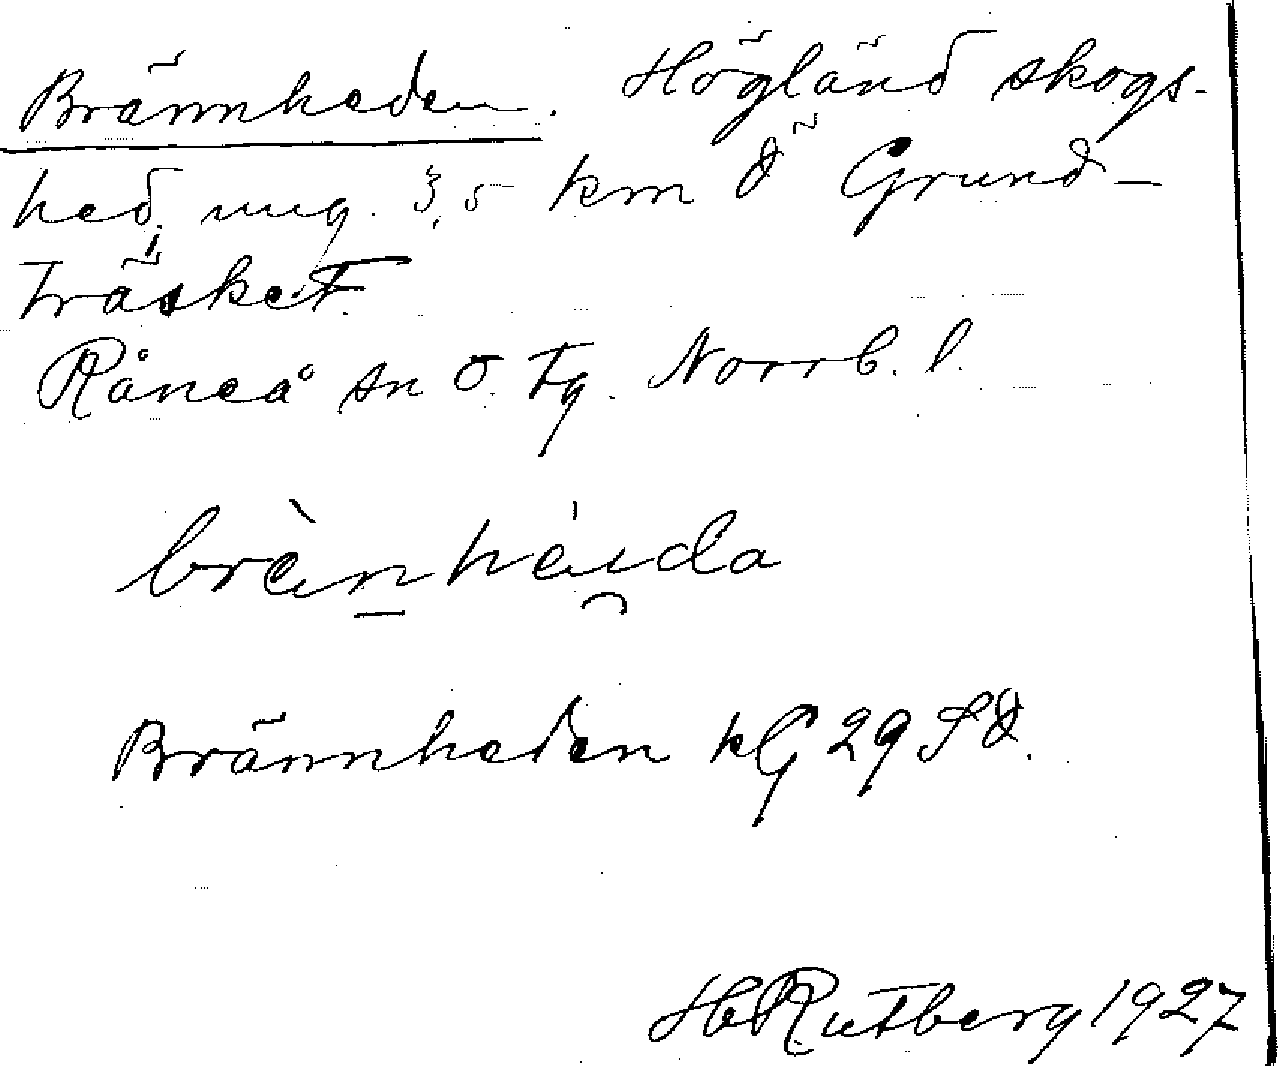 Brännheden. Högländ skogs-
hed, ung. 3,5 km Ö Grund-
träsket.
Råneå sn Ö. Tg. Norrb. l.
brèn héida
Brännheden kG 29 SÖ.
HRutberg 1927